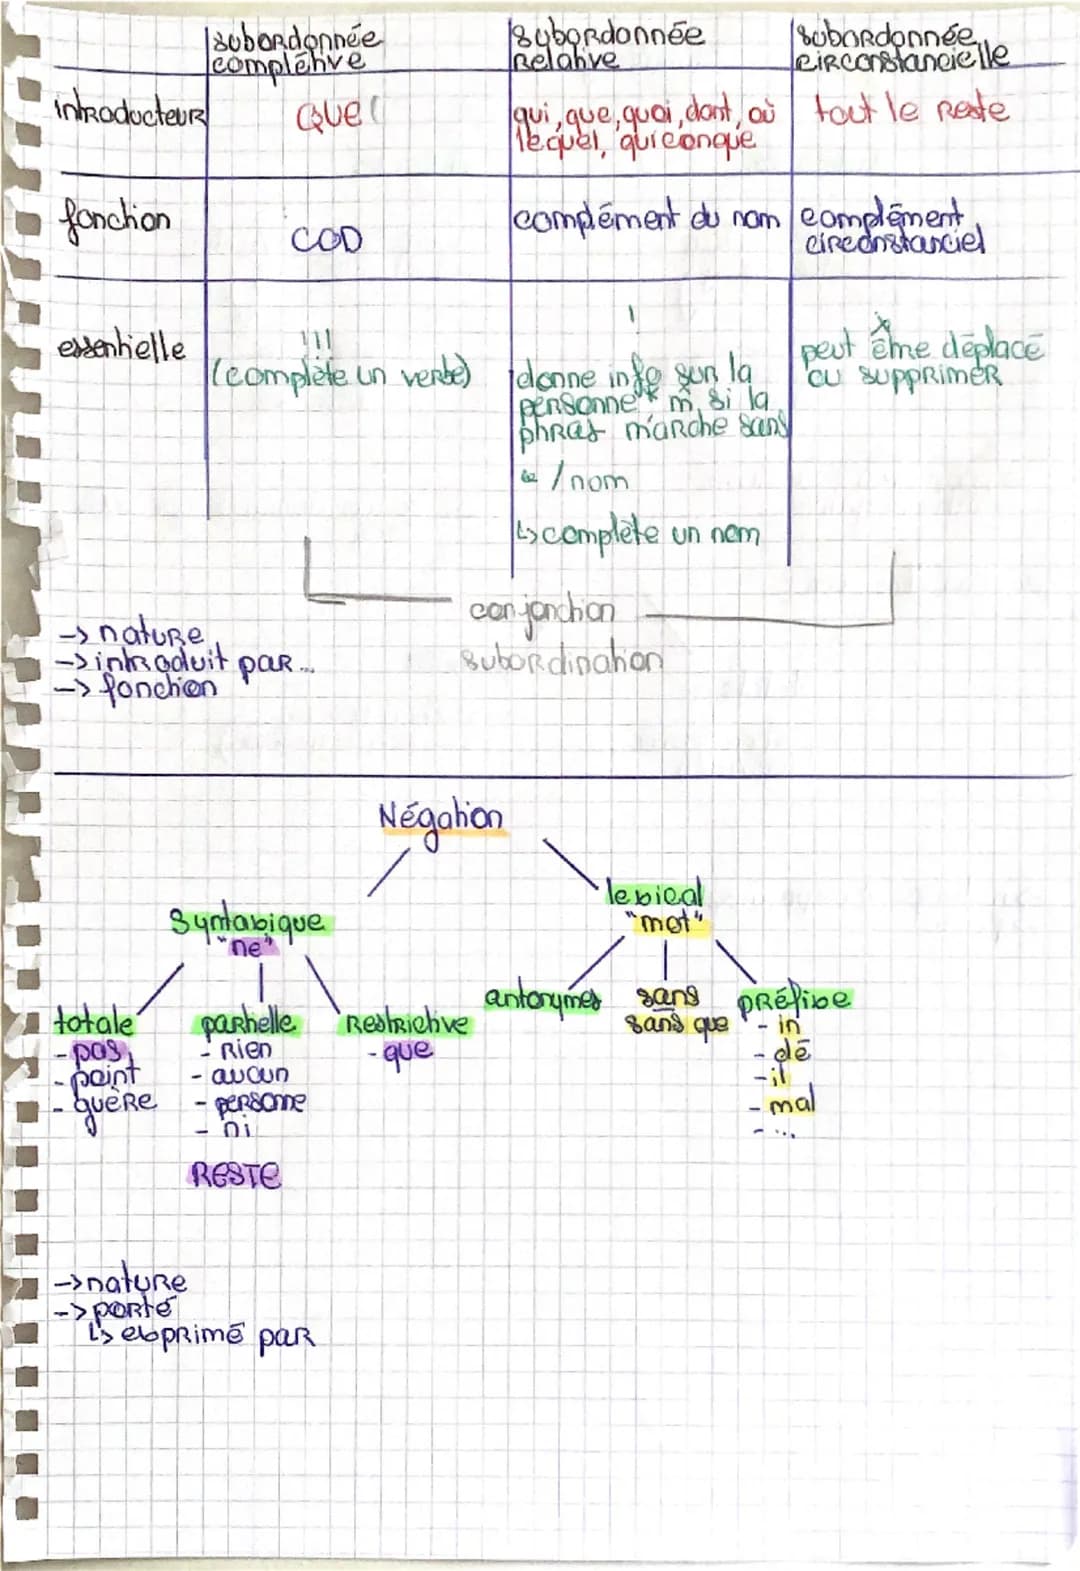 subordonnée complétive
subordonnée relative
subordonnée circonstancielle
introducteur
QUE
qui, que, quoi, dont, où
lequel, quiconque
tout le reste
fonction
COD
complément du nom
complément
circonstanciel
essentielle
!!!
(complète un verbe)
!
donne info sur la
personne* m si la
phras marche sans
* / nom
↳ complète un nom
x
peut être déplacé
ou supprimer
conjonction
subordination
-> nature
-> introduit par...
-> fonction
Négation
syntaxique
"ne"
lexical
"mot"
totale
- pas
- point
- guère
partielle
- rien
- aucun
- personne
- ni
RESTE
restrictive
- que
antonymes
sans
sans que
préfixe
- in
- dé
- il
- mal
- ...
-> nature
-> porté
↳ exprimé par